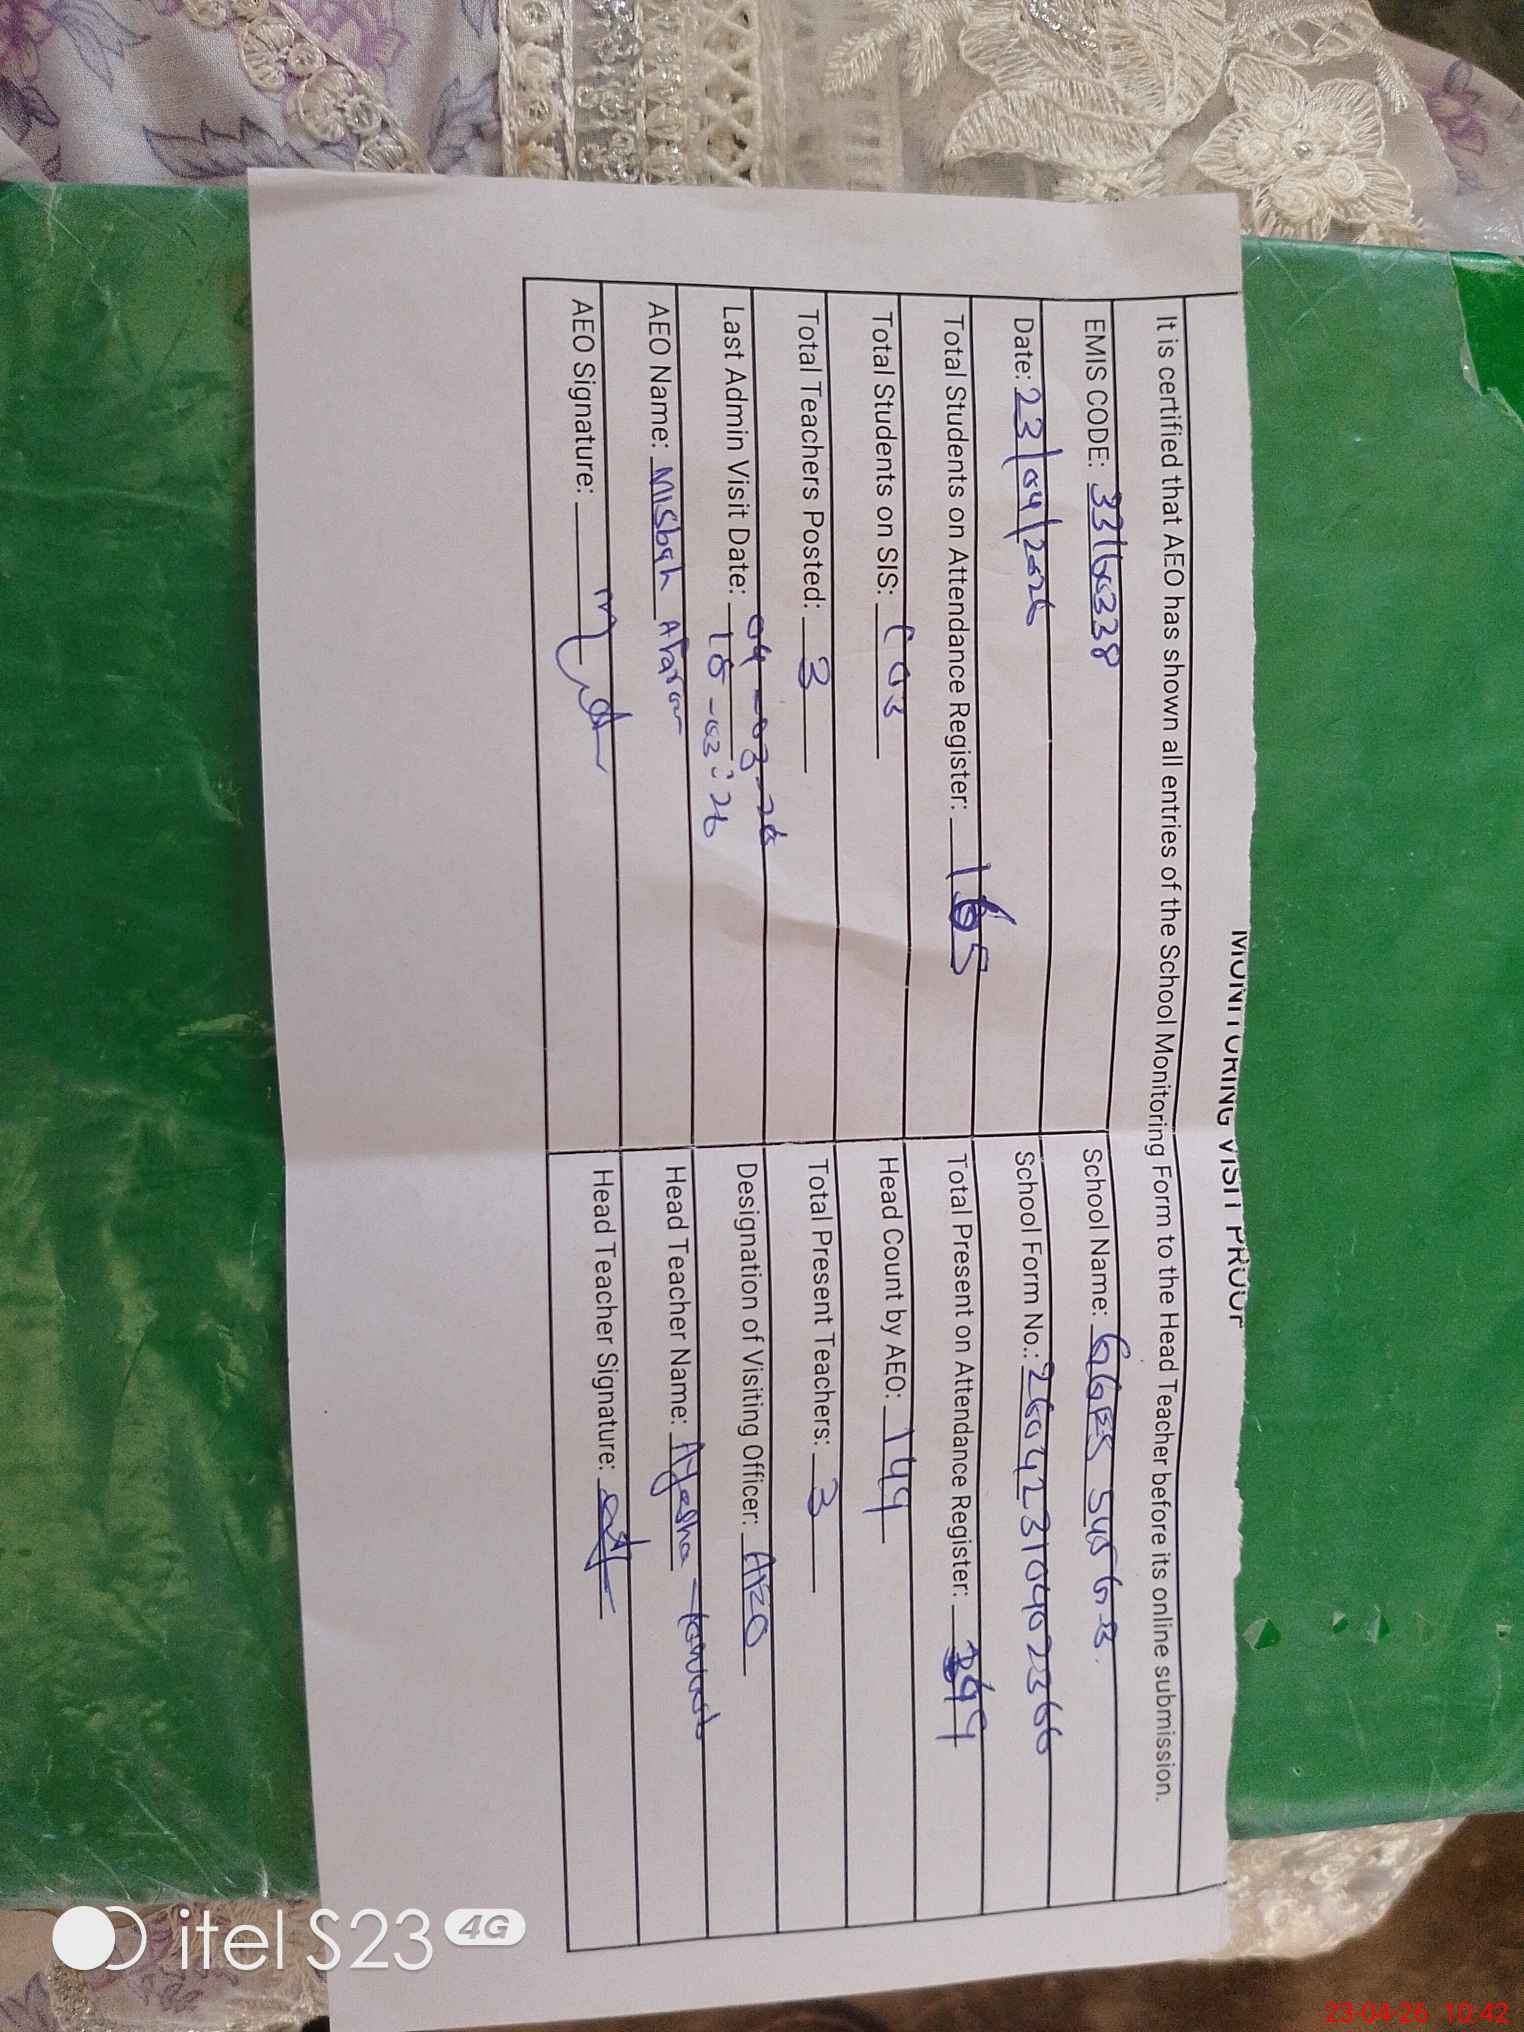 MONITORING VISIT PROOF
It is certified that AEO has shown all entries of the School Monitoring Form to the Head Teacher before its online submission.
EMIS CODE: 33160338 School Name: GGPS 545 G.B.
Date: 23/04/2026 School Form No.: 26042310402366
Total Students on Attendance Register: 165 Total Present on Attendance Register: 149
Total Students on SIS: Head Count by AEO: 149
Total Teachers Posted: 3 Total Present Teachers: 3
Last Admin Visit Date: 04-03-26 Designation of Visiting Officer: AEO
18-03-26
AEO Name: Misbah Head Teacher Name: Ayesha
AEO Signature: Head Teacher Signature:
itel S23 4G
23-04-26 10:42